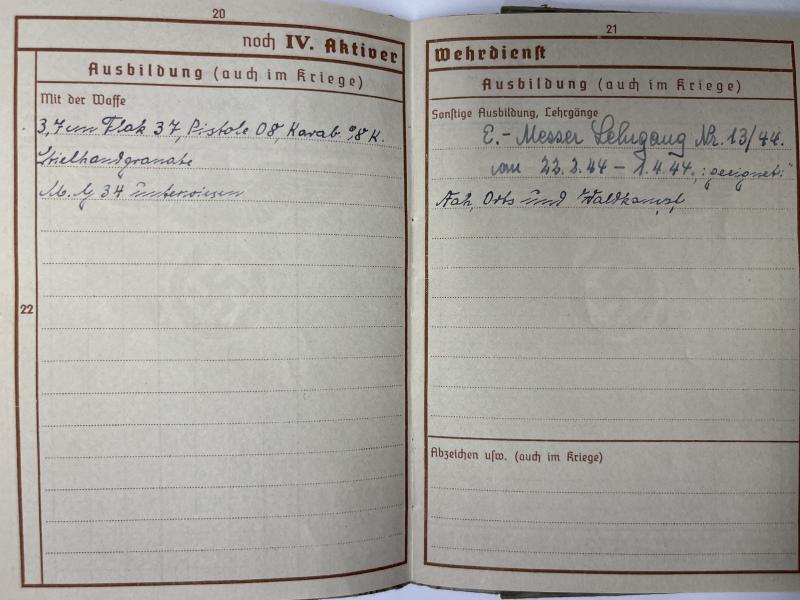 20
noch IV. Aktiver
Ausbildung (auch im Kriege)
Mit der Waffe
3,7 cm Flak 37, Pistole 08, Karab. 98 K.
Stielhandgranate
M. G. 34 unterwiesen
22
21
Wehrdienst
Ausbildung (auch im Kriege)
Sonstige Ausbildung, Lehrgänge
E.-Messer Lehrgang Nr. 13/44.
vom 22.2.44 – 1.4.44. „geeignet“
Nah, Orts und Waldkampf
Abzeichen usw. (auch im Kriege)